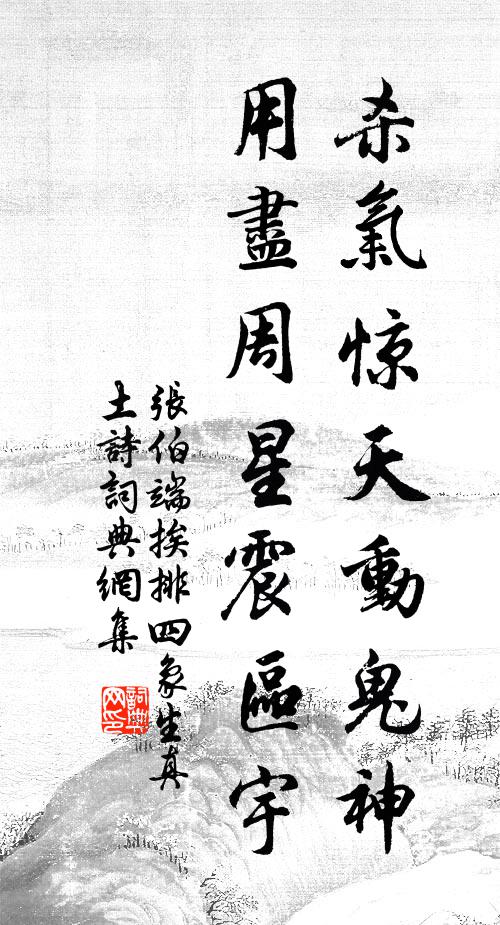 杀氣惊天動鬼神
用盡周星震區宇
張伯端挨排四象生真
土詩詞典網集
詞典
网印